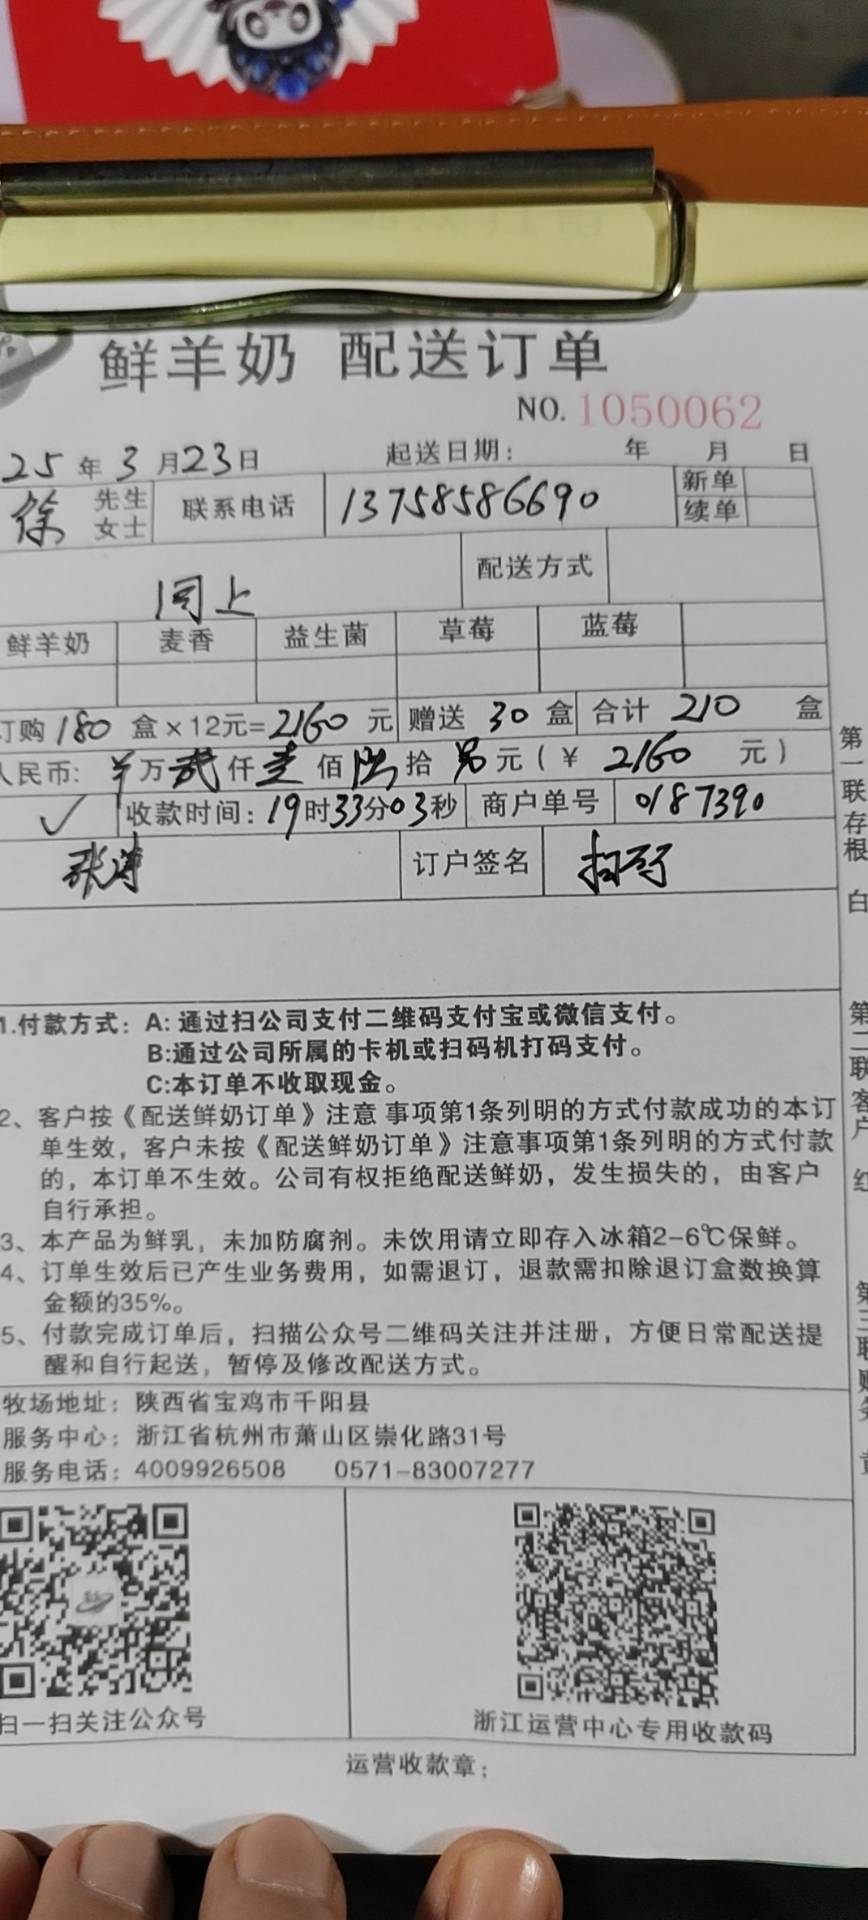 鲜羊奶 配送订单
NO. 1050062
25年3月23日 起送日期： 年 月 日
徐 先生 女士 联系电话 13758586690 新单 续单
同上 配送方式
鲜羊奶 麦香 益生菌 草莓 蓝莓
订购180盒×12元=2160元 赠送30盒 合计210盒
人民币: 万贰仟壹佰陆拾 元(¥ 2160 元)
✓ 收款时间: 19时33分03秒 商户单号 0187390
张 订户签名
1.付款方式：A: 通过扫公司支付二维码支付宝或微信支付。
B:通过公司所属的卡机或扫码机打码支付。
C:本订单不收取现金。
2、客户按《配送鲜奶订单》注意 事项第1条列明的方式付款成功的本订
单生效，客户未按《配送鲜奶订单》注意事项第1条列明的方式付款
的，本订单不生效。公司有权拒绝配送鲜奶，发生损失的，由客户
自行承担。
3、本产品为鲜乳，未加防腐剂。未饮用请立即存入冰箱2-6℃保鲜。
4、订单生效后已产生业务费用，如需退订，退款需扣除退订盒数换算
金额的35%。
5、付款完成订单后，扫描公众号二维码关注并注册，方便日常配送提
醒和自行起送，暂停及修改配送方式。
牧场地址：陕西省宝鸡市千阳县
服务中心：浙江省杭州市萧山区崇化路31号
服务电话：4009926508 0571-83007277
扫一扫关注公众号
浙江运营中心专用收款码
运营收款章：
第一联存根 白
第二联客户 红
第三联财务